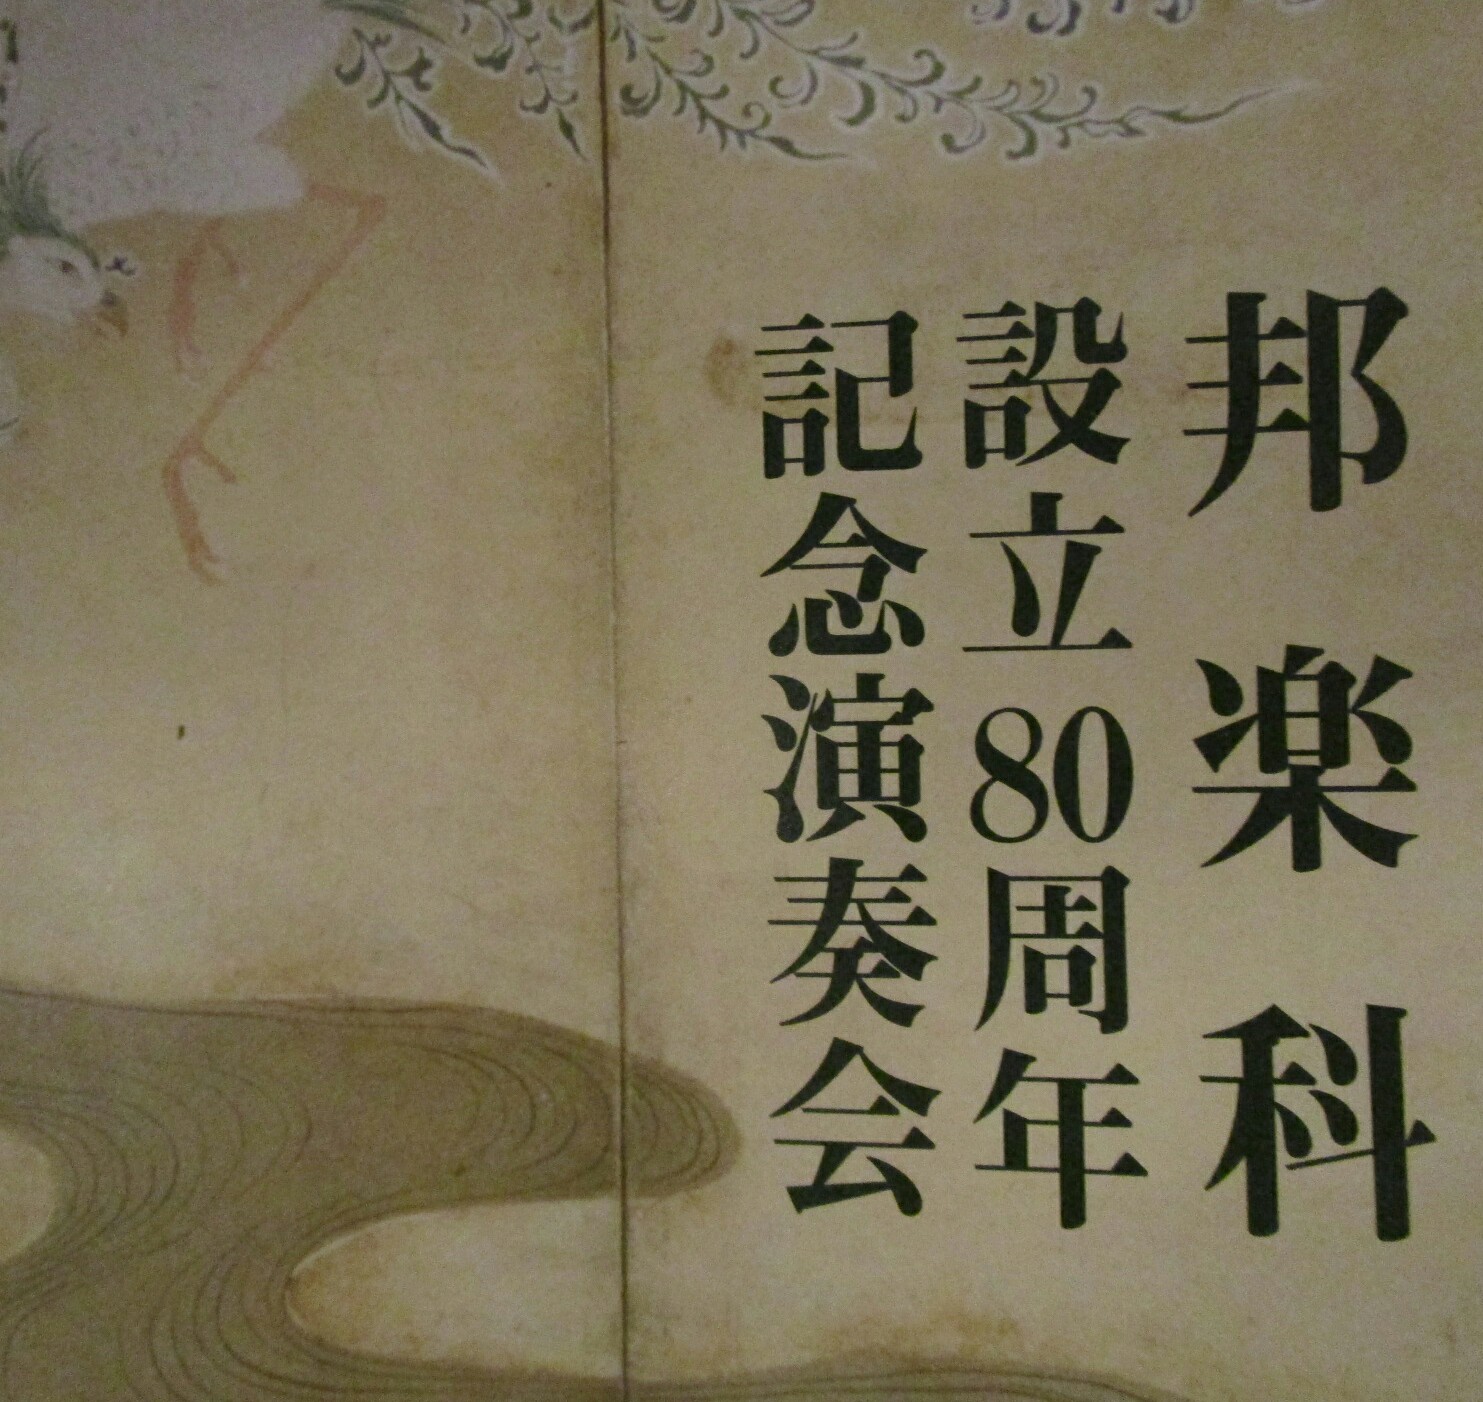 邦楽科
設立80周年
記念演奏会